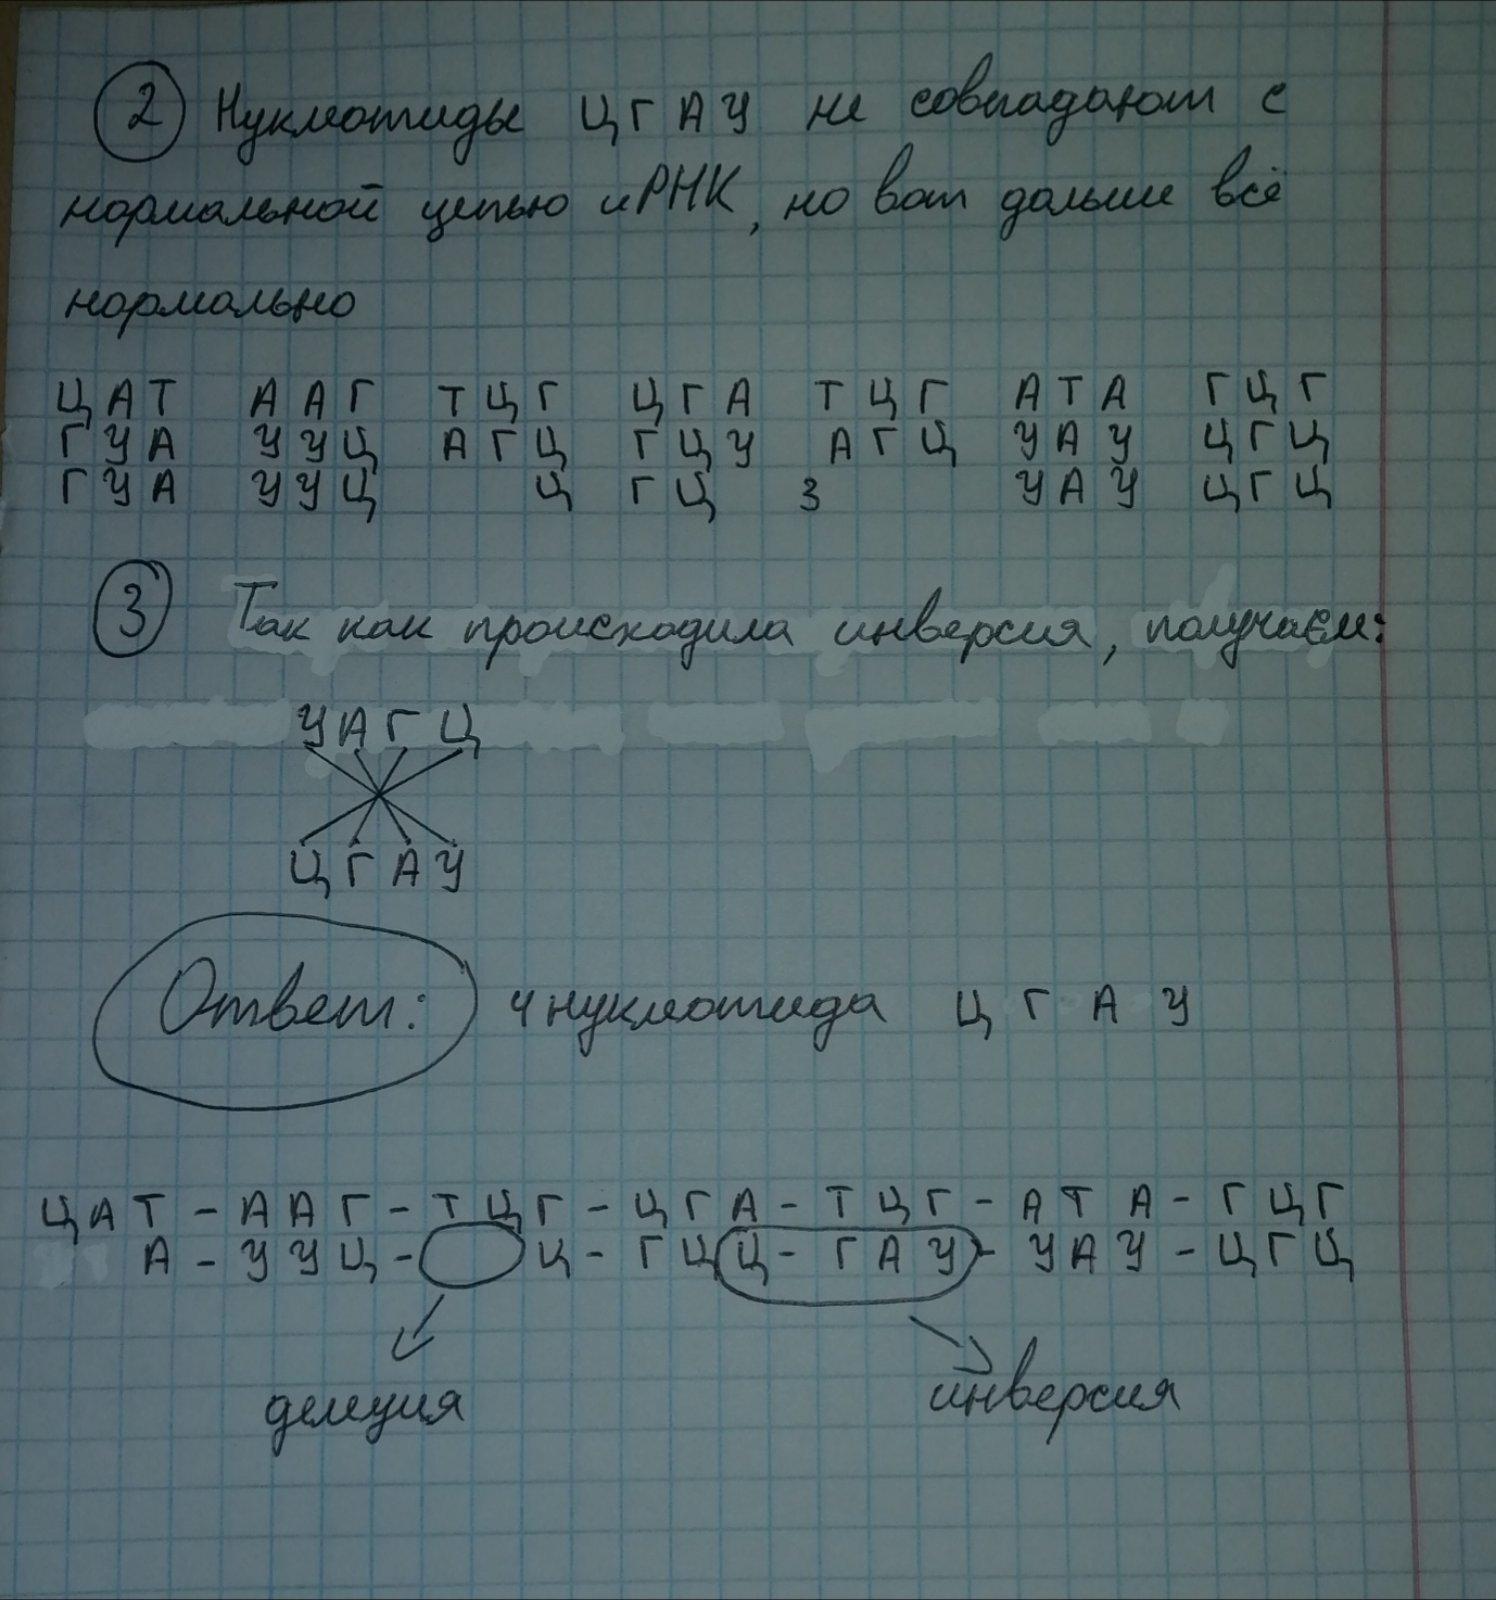 2 Нуклеотиды Ц Г А У не совпадают с
нормальной цепью иРНК, но вот дальше всё
нормально
Ц А Т А А Г Т Ц Г Ц Г А Т Ц Г А Т А Г Ц Г
Г У А У У Ц А Г Ц Г Ц У А Г Ц У А У Ц Г Ц
Г У А У У Ц Ц Г Ц З У А У Ц Г Ц
3 Так как происходила инверсия, получаем:
У А Г Ц
Ц Г А У
Ответ: 4 нуклеотида Ц Г А У
Ц А Т - А А Г - Т Ц Г - Ц Г А - Т Ц Г - А Т А - Г Ц Г
А - У У Ц - Ц - Г Ц Ц - Г А У - У А У - Ц Г Ц
делеция инверсия